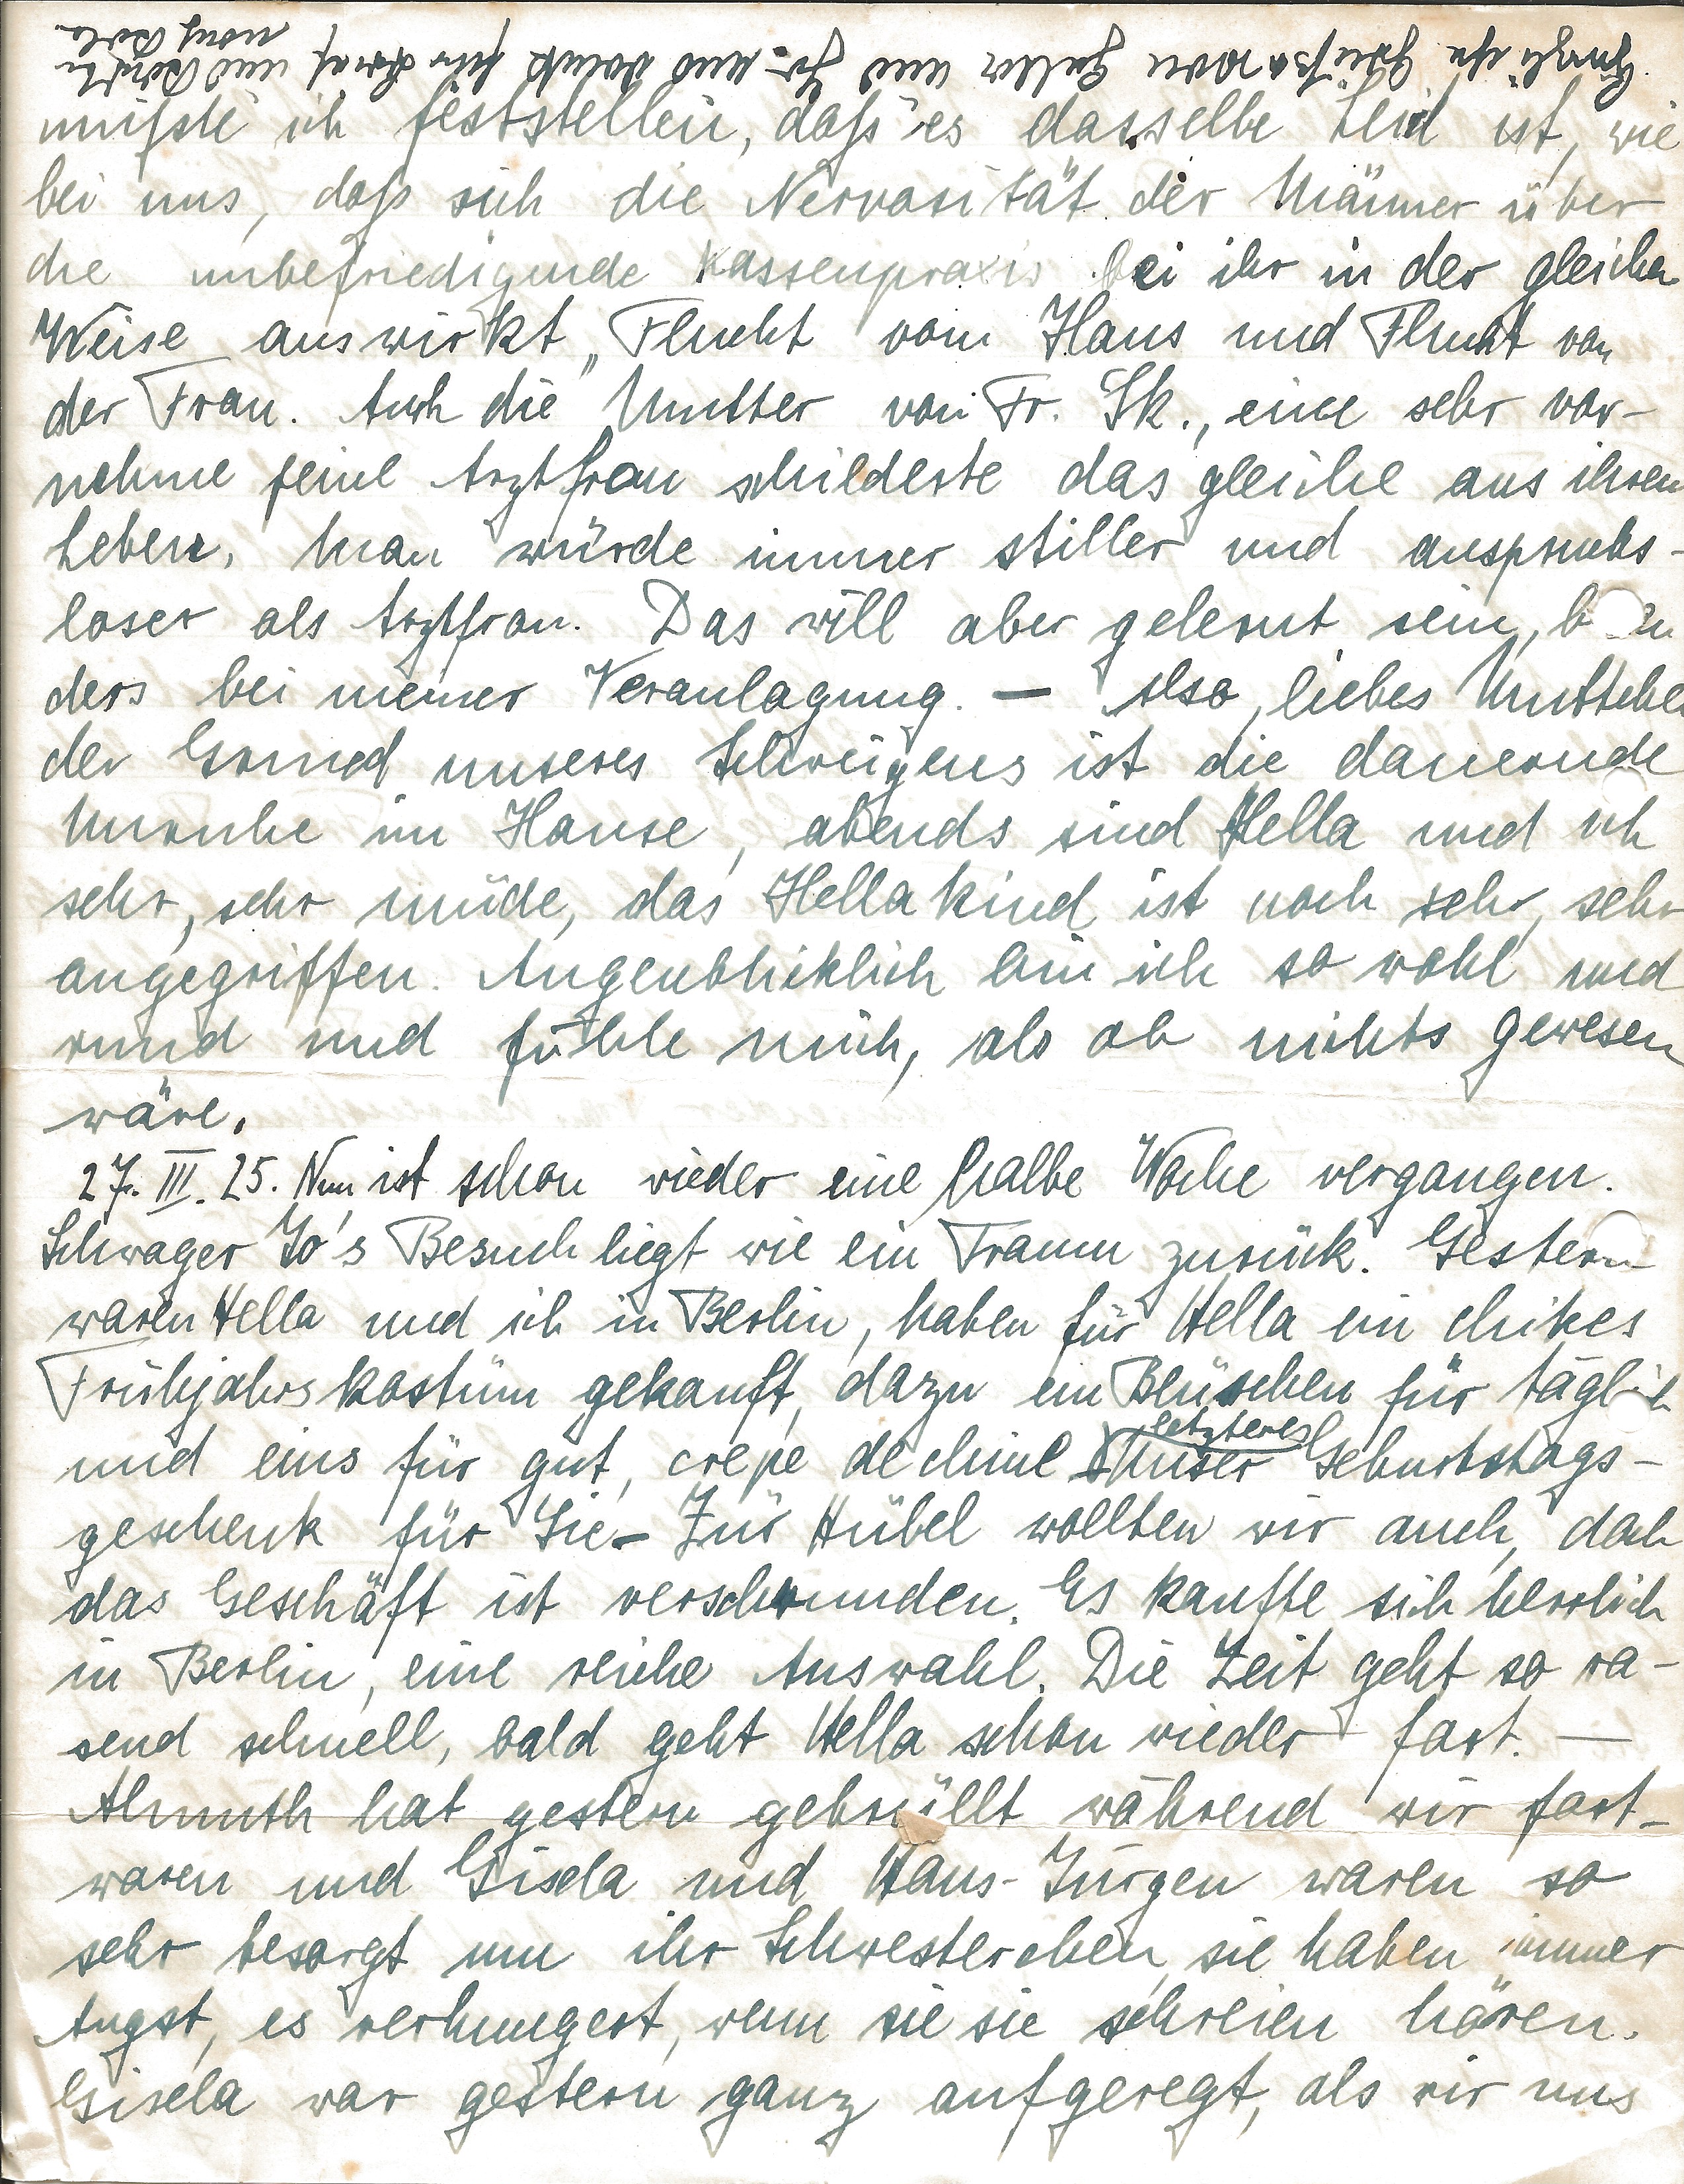 Herzliche Grüße von Hella und Jo und
mußte ich feststellen, daß es dasselbe Leid ist, wie
bei uns, daß sich die Nervosität der Männer über
die unbefriedigende Kassenpraxis bei ihr in der gleichen
Weise auswirkt „Flucht vom Haus und Flucht von
der Frau. Auch die Mutter von Fr. Sk., eine sehr vor-
nehme feine Arztfrau schilderte das gleiche aus ihrem
Leben, man würde immer stiller und anspruchs-
loser als Arztfrau. Das will aber gelernt sein,
ders bei meiner Veranlagung. — Also, liebes Muttchen
der Grund unseres Schweigens ist die dauernde
Unruhe im Hause, abends sind Hella und ich
sehr, sehr müde, das Hellakind ist noch sehr, sehr
angegriffen. Augenblicklich bin ich so wohl und
rund und fühle mich, als ob nichts gewesen
wäre.
27. III. 25. Nun ist schon wieder eine halbe Woche vergangen.
Schwager Jo's Besuch liegt wie ein Traum zurück. Gestern
waren Hella und ich in Berlin, haben für Hella ein chikes
Frühjahrskostüm gekauft, dazu ein Blüschen für täglich
und eins für gut, crepe de chine letzteres Unser Geburtstags-
geschenk für Sie – Zur Hübel wollten wir auch, doch
das Geschäft ist verschwunden. Es kaufte sich herrlich
in Berlin, eine reiche Auswahl. Die Zeit geht so ra-
send schnell, bald geht Hella schon wieder fort. —
Almuth hat gestern gebrüllt während wir fort-
waren und Gisela und Hans-Jürgen waren so
sehr besorgt um ihr Schwesterchen, sie haben immer
Angst, es verhungert, wenn sie sie schreien hören.
Gisela war gestern ganz aufgeregt, als wir uns